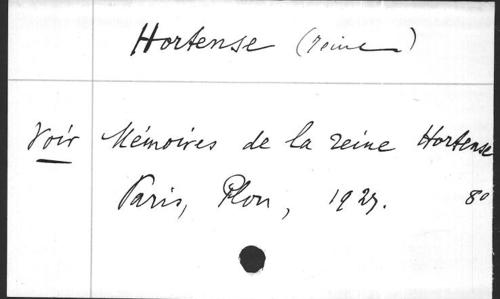 Hortense (reine)
Voir Mémoires de la reine Hortense
Paris, Plon, 1927. 8°